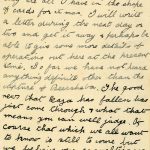 they are all I had in the shape
of cards for it now, I will write
a letter during the next day or
two and get it away & perhaps be
able to give some more details of
operations out here at the present
time. I see we have not heard
anything definite other than the
capture of Beersheba, I be good
news that Gaza has fallen has
just come through & what that
means you can well judge. Of
course that which we all want
to know is still to come but
we